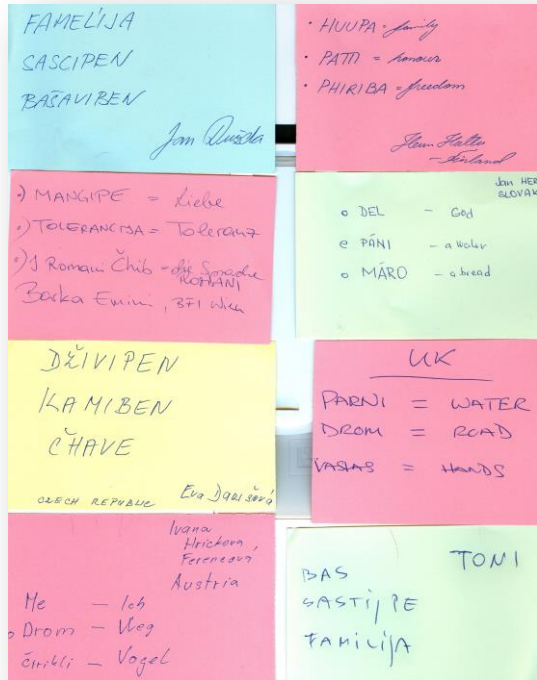 FAMELIJA
SASCIPEN
BAŠAVIBEN
Jan
• HUUPA = family
• PATTI = honour
• PHIRIBA = freedom
– Finland
•) MANGIPE = Liebe
•) TOLERANCIJA = Toleranz
•) I Romani Čhib = die Sprache
ROMANI
Barka Emini, BFI Wien
Jan HER
SLOVAK
o DEL – God
o PÁNI – a water
o MÁRO – a bread
DŽIVIPEN
KAMIBEN
ČHAVE
CZECH REPUBLIC Eva Danišová
UK
PARNI = WATER
DROM = ROAD
VASTAS = HANDS
Ivana
Hrickova,
Ferencova
Austria
Me – Ich
o Drom – Weg
Čirikli – Vogel
TONI
BAS
SASTIJPE
FAMILIJA